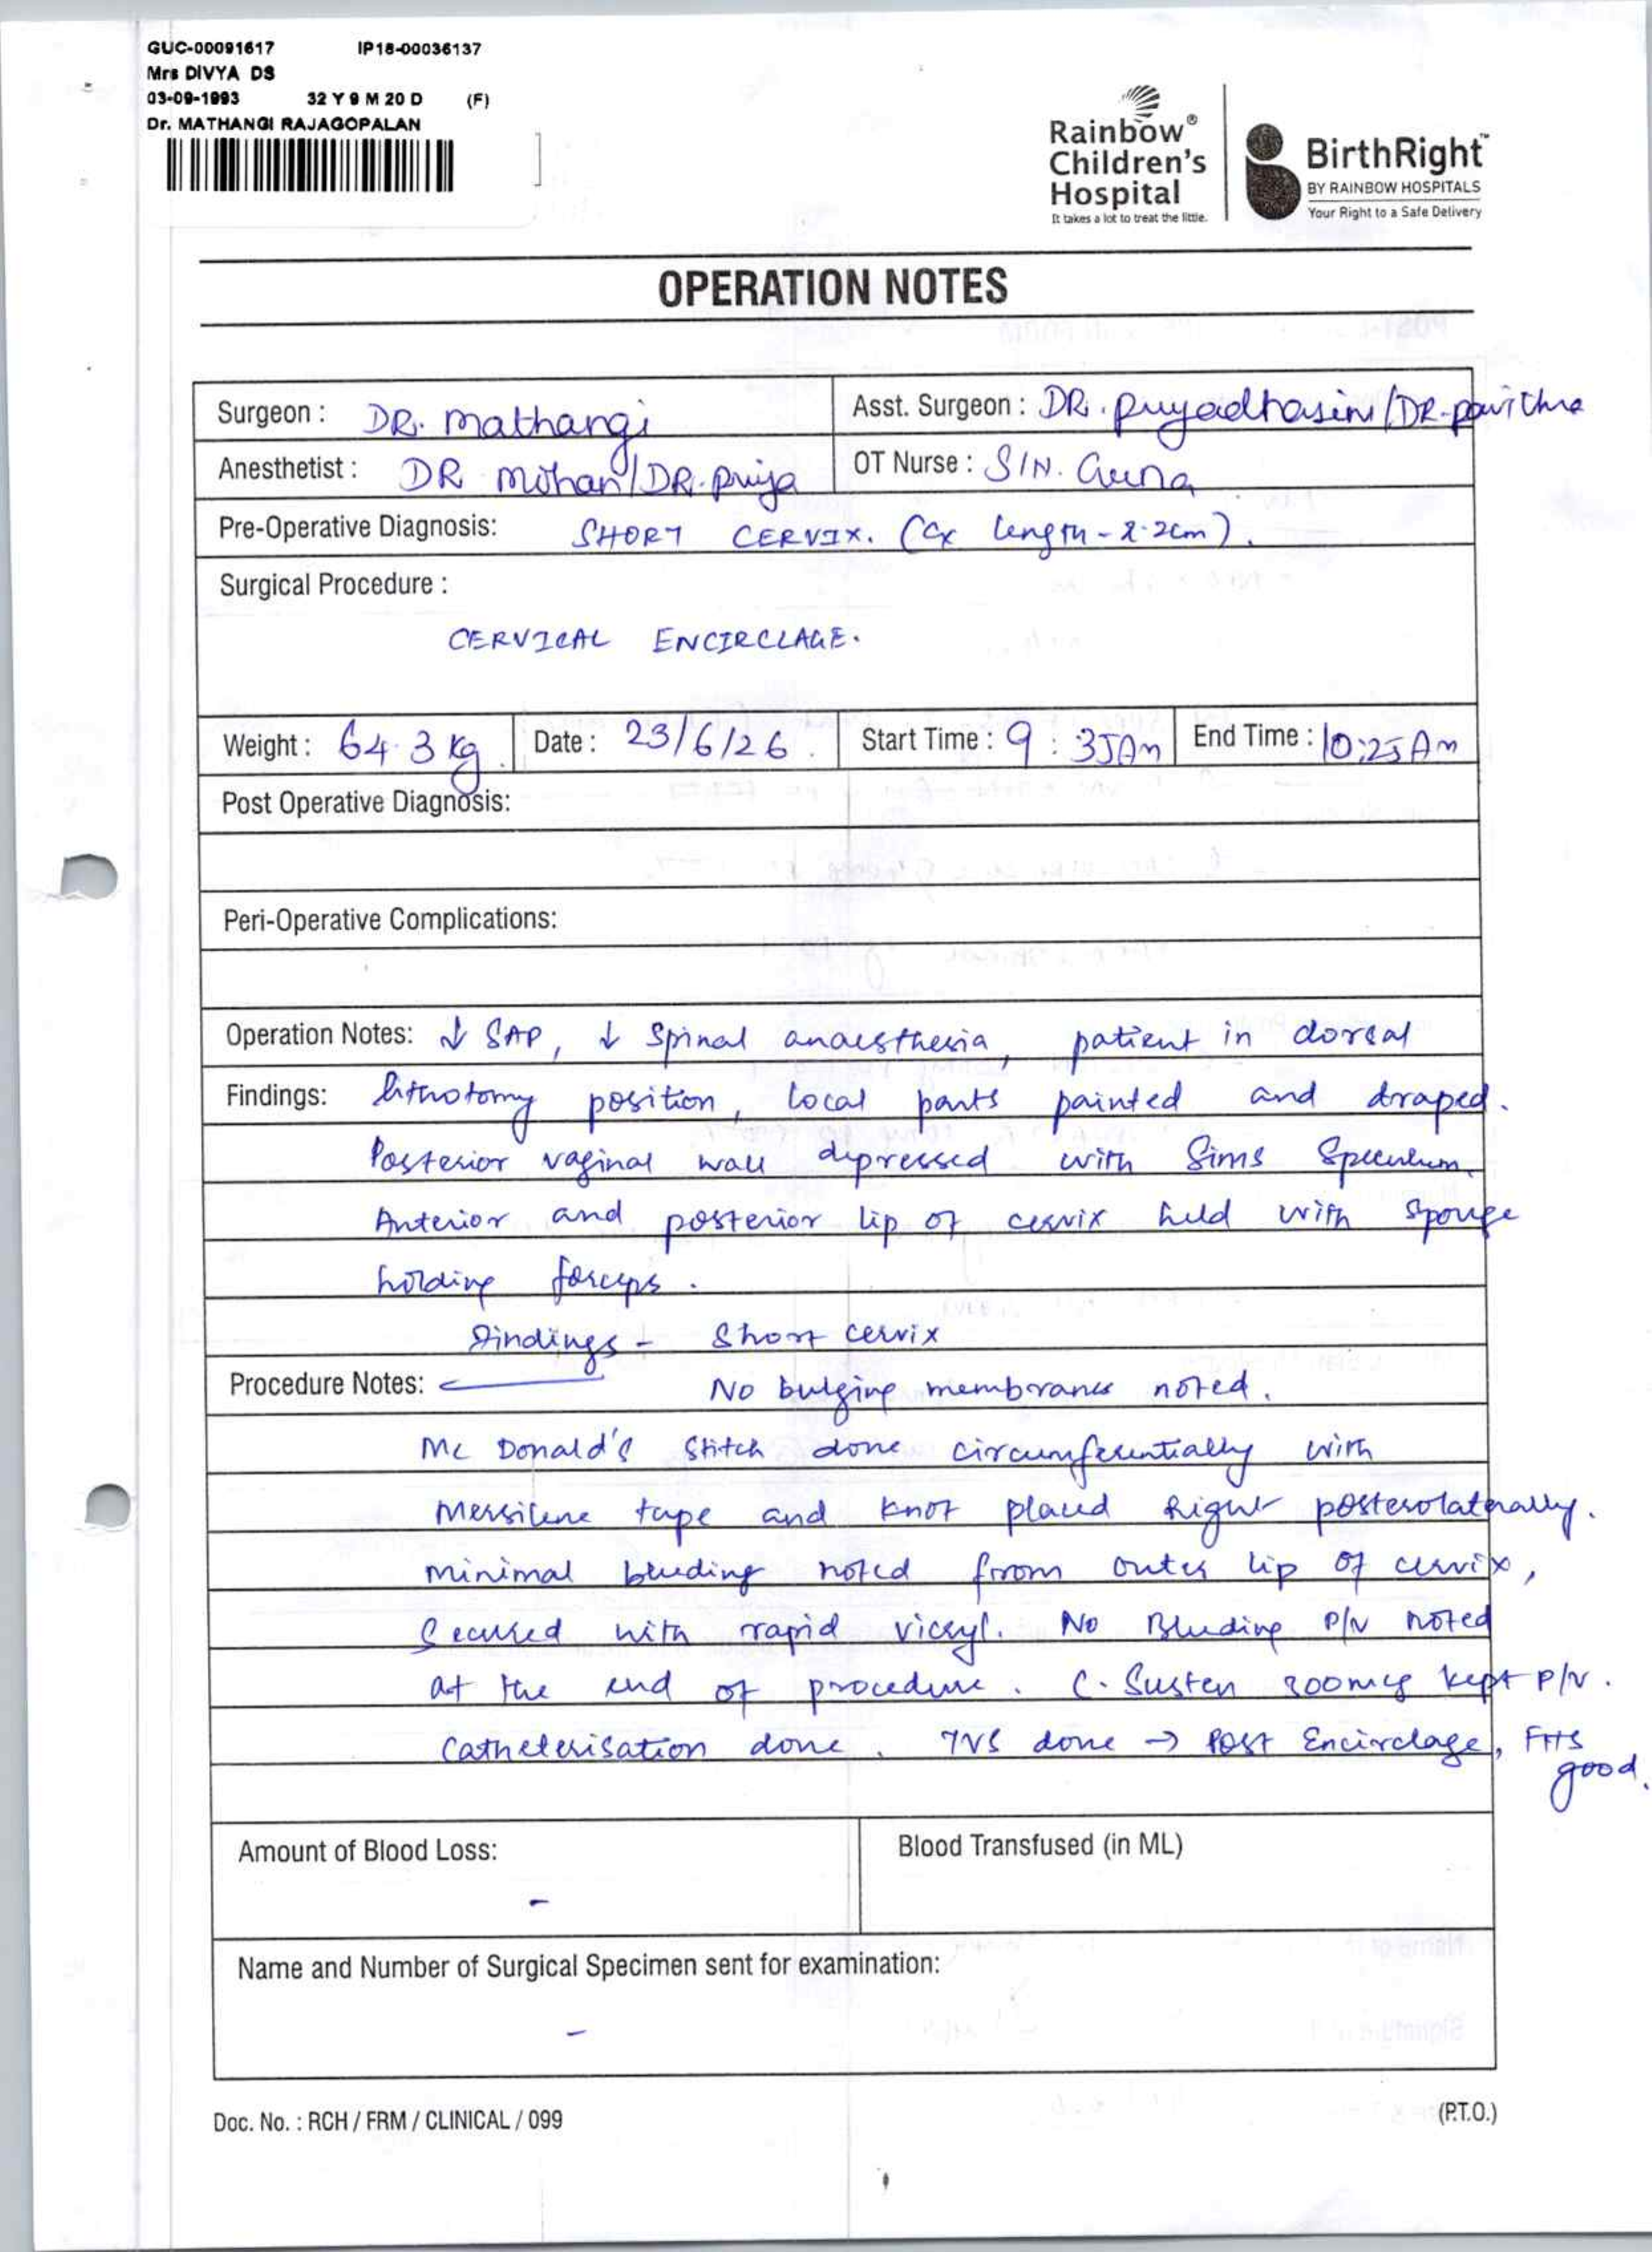 GUC-00091617 IP18-00036137
Mrs DIVYA DS
03-09-1993 32 Y 9 M 20 D (F)
Dr. MATHANGI RAJAGOPALAN
Rainbow® Children's Hospital
It takes a lot to treat the little.
BirthRight™
BY RAINBOW HOSPITALS
Your Right to a Safe Delivery
OPERATION NOTES
Surgeon : DR. Mathangi Asst. Surgeon : DR. Priyadhasini / DR. Pavithra
Anesthetist : DR Mohan / DR. Priya OT Nurse : S/N.
Pre-Operative Diagnosis: SHORT CERVIX. (Cx length - 2.2cm).
Surgical Procedure :
CERVICAL ENCIRCLAGE.
Weight : 64.3 kg. Date : 23/6/26. Start Time : 9:35Am End Time : 10:25 Am
Post Operative Diagnosis:
Peri-Operative Complications:
Operation Notes: ↓ SAP, ↓ Spinal anaesthesia, patient in dorsal
Findings: lithotomy position, local parts painted and draped.
Posterior vaginal wall depressed with Sims Speculum.
Anterior and posterior lip of cervix held with sponge
holding forceps.
Findings - Short cervix
Procedure Notes: No bulging membranes noted.
Mc Donald's Stitch done circumferentially with
Mersilene tape and knot placed Right posterolaterally.
minimal bleeding noted from outer lip of cervix,
Secured with rapid vicryl. No Bleeding P/V noted
at the end of procedure. C. Susten 300mcg kept P/V.
Catheterisation done. TVS done → Post Encirclage, FHS
good.
Amount of Blood Loss: Blood Transfused (in ML)
-
Name and Number of Surgical Specimen sent for examination:
-
Doc. No. : RCH / FRM / CLINICAL / 099 (P.T.O.)